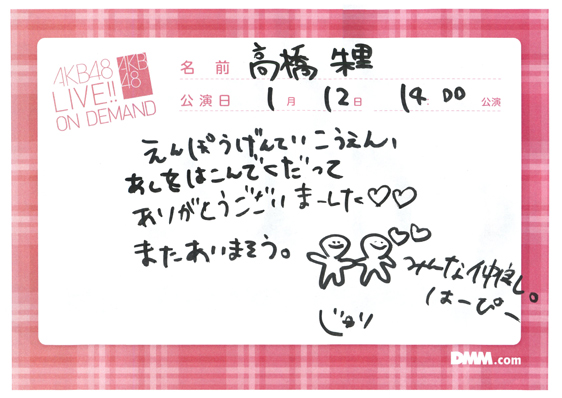 AKB48
LIVE!!
ON DEMAND
AKB
48
名前 高橋 朱里
公演日 1月 12日 14:00 公演
えんぽうげんていこうえん、
あしをはこんでくだって
ありがとうございまーした♡♡
またあいまそう。
みんな仲良し。
はーぴー
じゅり
DMM.com